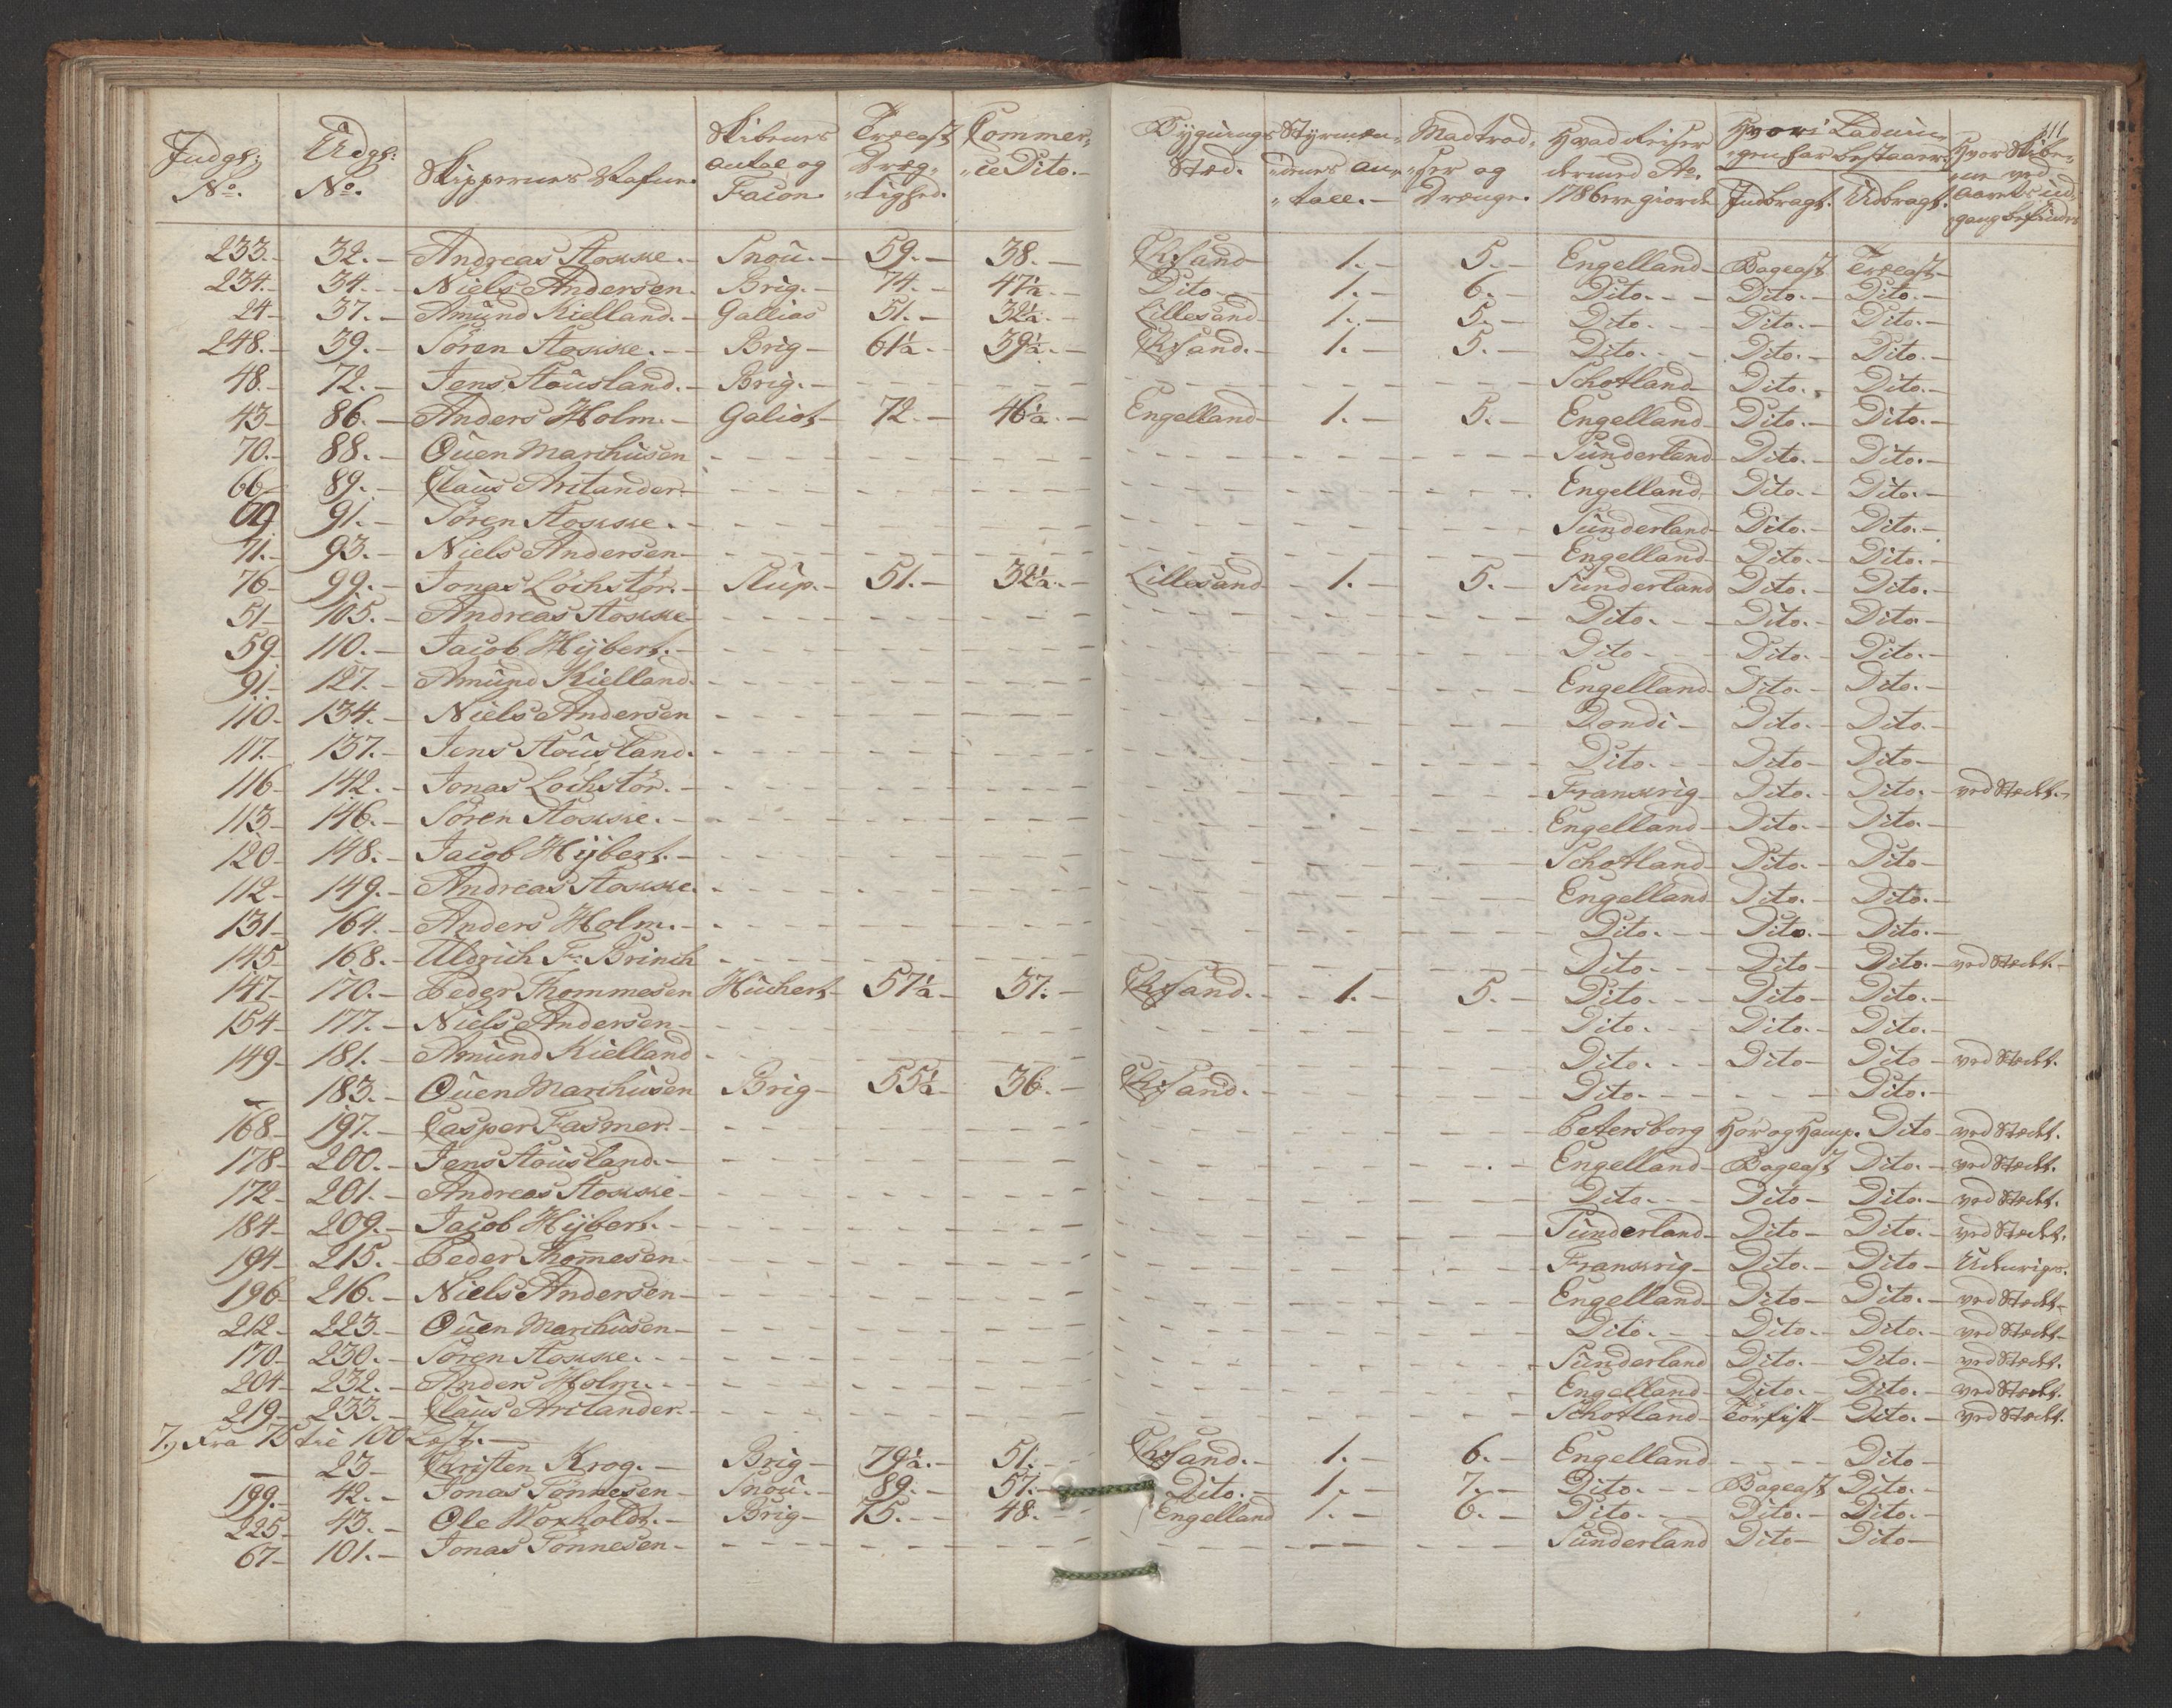 111.
Indgl: No. | Udgl: No. | Skippernes Nafne. | Skibenes antal og Facon. | Trælast Dræg-tighed. | Commer-ce Dito. | Bygnings Stæd. | Styrmæn-denes an-tall. | Madtrod-ser og Drænge. | Hvad Reiser dermed Ao. 1786 ere giorde | Hvori Ladnin-gen har bestaaet. Indbragt. | Udbragt. | Hvor Skibe-ne ved Aarets ud-gang befindes
233. 32. Andreas Stokke. Snou. 59. 38. Chrsand 1. 5. Engelland Bagelast Trælast
234. 34. Niels Andersen. Brig. 74. 47½. Dito 1. 6. Dito. Dito. Dito.
24 37. Amund Kielland. Gallias 51. 32½. Lillesand 1. 5. Dito. Dito. Dito.
248. 39. Sören Stokke. Brig 61½. 39½. Chrsand. 1. 5. Dito. Dito. Dito.
48. 72. Jens Stousland. Brig. Schotland Dito. Dito.
43 86. Anders Holm. Galiot 72. 46½. Engelland 1. 5. Engelland Dito. Dito.
70. 88. Ouen Marchusen Sunderland Dito. Dito.
66 89. Claus Arctander. Engelland Dito. Dito.
69 91. Sören Stokke. Sunderland Dito. Dito.
71. 93. Niels Andersen Engelland Dito. Dito.
76 99. Jonas Löchstör. Slup. 51. 32½. Lillesand 1. 5. Sunderland Dito. Dito.
51 105. Andreas Stokke Dito. Dito. Dito
59 110. Jacob Hijbert. Dito Dito. Dito.
91 127. Amund Kielland. Engelland Dito. Dito.
110. 134. Niels Andersen Dondi Dito. Dito.
117. 137. Jens Stousland. Dito. Dito Dito
116 142. Jonas Löchstör. Frankrig Dito. Dito. ved Stædt.
113 146. Sören Stokke. Engelland Dito. Dito.
120 148. Jacob Hijbert. Schotland Dito. Dito
112 149. Andreas Stokke. Engelland Dito. Dito.
131 164. Anders Holm. Dito. Dito. Dito.
145 168. Uldrich Fr. Brinch Dito Dito Dito. ved Stædt.
147 170. Peder Thommesen Huchert 57½ 37. Chrsand. 1. 5. Dito. Dito Dito.
154 177. Niels Andersen Dito. Dito. Dito.
149 181. Amund Kielland Dito. Dito Dito ved Stædt.
— 183. Ouen Marchusen Brig 55½ 36. Chrsand. Dito. Dito.
168 197. Casper Fasmer. Petersborg Hör og Hamp. Dito ved Stædt.
178 200. Jens Stousland. Engelland Bagelast Dito. ved Stædt.
172 201. Andreas Stokke Dito. Dito Dito. ved Stædt.
184 209. Jacob Hijbert. Sunderland Dito Dito. ved Stædt.
194 215. Peder Thom̄esen. Frankrig Dito. Dito Udenrigs.
196 216. Niels Andersen Engelland Dito Dito. ved Stædt.
212 223. Ouen Marchusen Dito. Dito. Dito. ved Stædt
170 230. Sören Stokke. Sunderland Dito. Dito. ved Stædt.
204 232. Anders Holm. Engelland Dito. Dito. ved Stædt.
219 233. Claus Arctander. Schotland Törfisk Dito. ved Stædt.
7.) Fra 75 til 100 Læst.
— 23 Christen Krog. Brig 79½. 51. Chrsand. 1. 6. Engelland Dito
199. 42. Jonas Tönnesen Snou. 89. 57. Dito. 1. 7. Dito. Bagelast Dito.
225 43. Ole Woxholdt. Brig 75. 48. Engelland 1. 6. Dito. Dito. Dito.
67 101. Jonas Tönnesen Sunderland Dito Dito